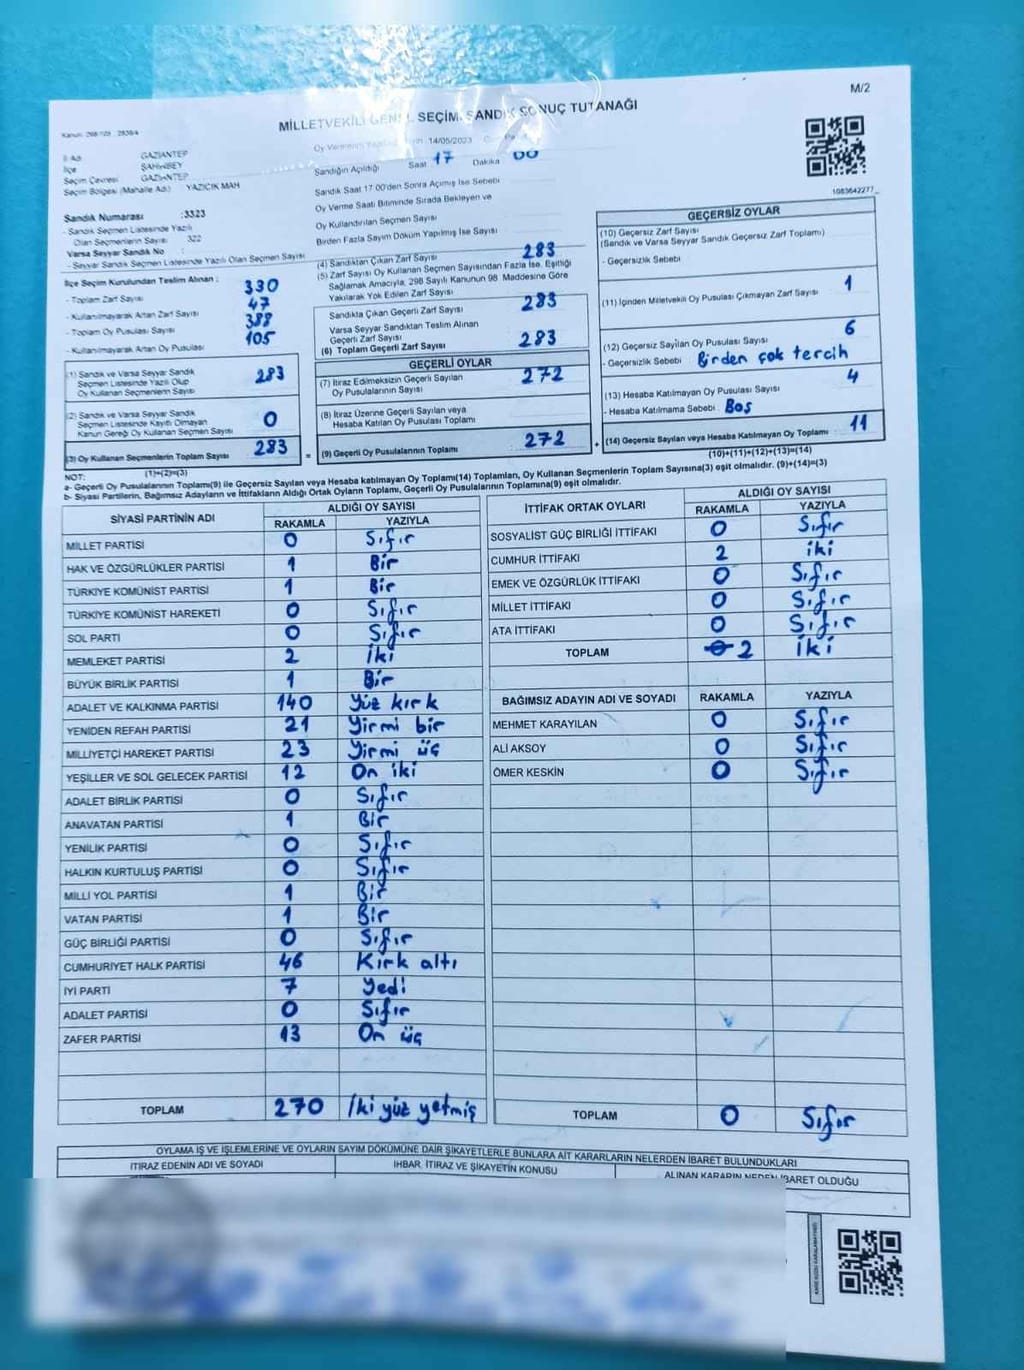 M/2
MİLLETVEKİLİ GENEL SEÇİMİ SANDIK SONUÇ TUTANAĞI
İl Adı GAZİANTEP
İlçe ŞAHİNBEY
Seçim Çevresi GAZİANTEP
Seçim Bölgesi (Mahalle Adı) YAZICIK MAH
14/05/2023
Sandığın Açıldığı Saat 17 Dakika 00
Sandık Saat 17:00'den Sonra Açılmış İse Sebebi
Oy Verme Saati Bitiminde Sırada Bekleyen ve
Oy Kullandırılan Seçmen Sayısı
Birden Fazla Sayım Döküm Yapılmış İse Sayısı
1083642277
Sandık Numarası :3323
- Sandık Seçmen Listesinde Yazılı
Olan Seçmenlerin Sayısı 322
Varsa Seyyar Sandık No :
- Seyyar Sandık Seçmen Listesinde Yazılı Olan Seçmen Sayısı
İlçe Seçim Kurulundan Teslim Alınan :
- Toplam Zarf Sayısı 330
- Kullanılmayarak Artan Zarf Sayısı 47
- Toplam Oy Pusulası Sayısı 388
- Kullanılmayarak Artan Oy Pusulası 105
(1) Sandık ve Varsa Seyyar Sandık
Seçmen Listesinde Yazılı Olup
Oy Kullanan Seçmenlerin Sayısı 283
(2) Sandık ve Varsa Seyyar Sandık
Seçmen Listesinde Kayıtlı Olmayan
Kanun Gereği Oy Kullanan Seçmen Sayısı 0
(3) Oy Kullanan Seçmenlerin Toplam Sayısı 283
(1)+(2)=(3)
(4) Sandıktan Çıkan Zarf Sayısı 283
(5) Zarf Sayısı Oy Kullanan Seçmen Sayısından Fazla İse, Eşitliği
Sağlamak Amacıyla, 298 Sayılı Kanunun 98. Maddesine Göre
Yakılarak Yok Edilen Zarf Sayısı
Sandıkta Çıkan Geçerli Zarf Sayısı 283
Varsa Seyyar Sandıktan Teslim Alınan
Geçerli Zarf Sayısı
(6) Toplam Geçerli Zarf Sayısı 283
GEÇERLİ OYLAR
(7) İtiraz Edilmeksizin Geçerli Sayılan
Oy Pusulalarının Sayısı 272
(8) İtiraz Üzerine Geçerli Sayılan veya
Hesaba Katılan Oy Pusulası Toplamı
= (9) Geçerli Oy Pusulalarının Toplamı 272 +
GEÇERSİZ OYLAR
(10) Geçersiz Zarf Sayısı
(Sandık ve Varsa Seyyar Sandık Geçersiz Zarf Toplamı)
- Geçersizlik Sebebi
(11) İçinden Milletvekili Oy Pusulası Çıkmayan Zarf Sayısı 1
(12) Geçersiz Sayılan Oy Pusulası Sayısı 6
- Geçersizlik Sebebi Birden çok tercih
(13) Hesaba Katılmayan Oy Pusulası Sayısı 4
- Hesaba Katılmama Sebebi Boş
(14) Geçersiz Sayılan veya Hesaba Katılmayan Oy Toplamı 11
(10)+(11)+(12)+(13)=(14)
NOT:
a- Geçerli Oy Pusulasının Toplamı(9) ile Geçersiz Sayılan veya Hesaba katılmayan Oy Toplamı(14) Toplamları, Oy Kullanan Seçmenlerin Toplam Sayısına(3) eşit olmalıdır. (9)+(14)=(3)
b- Siyasi Partilerin, Bağımsız Adayların ve İttifakların Aldığı Ortak Oyların Toplamı, Geçerli Oy Pusulalarının Toplamına(9) eşit olmalıdır.
SİYASİ PARTİNİN ADI ALDIĞI OY SAYISI
RAKAMLA YAZIYLA
MİLLET PARTİSİ 0 Sıfır
HAK VE ÖZGÜRLÜKLER PARTİSİ 1 Bir
TÜRKİYE KOMÜNİST PARTİSİ 1 Bir
TÜRKİYE KOMÜNİST HAREKETİ 0 Sıfır
SOL PARTİ 0 Sıfır
MEMLEKET PARTİSİ 2 İki
BÜYÜK BİRLİK PARTİSİ 1 Bir
ADALET VE KALKINMA PARTİSİ 140 Yüz kırk
YENİDEN REFAH PARTİSİ 21 Yirmi bir
MİLLİYETÇİ HAREKET PARTİSİ 23 Yirmi üç
YEŞİLLER VE SOL GELECEK PARTİSİ 12 On iki
ADALET BİRLİK PARTİSİ 0 Sıfır
ANAVATAN PARTİSİ 1 Bir
YENİLİK PARTİSİ 0 Sıfır
HALKIN KURTULUŞ PARTİSİ 0 Sıfır
MİLLİ YOL PARTİSİ 1 Bir
VATAN PARTİSİ 1 Bir
GÜÇ BİRLİĞİ PARTİSİ 0 Sıfır
CUMHURİYET HALK PARTİSİ 46 Kırk altı
İYİ PARTİ 7 Yedi
ADALET PARTİSİ 0 Sıfır
ZAFER PARTİSİ 13 On üç
TOPLAM 270 İki yüz yetmiş
İTTİFAK ORTAK OYLARI ALDIĞI OY SAYISI
RAKAMLA YAZIYLA
SOSYALİST GÜÇ BİRLİĞİ İTTİFAKI 0 Sıfır
CUMHUR İTTİFAKI 2 iki
EMEK VE ÖZGÜRLÜK İTTİFAKI 0 Sıfır
MİLLET İTTİFAKI 0 Sıfır
ATA İTTİFAKI 0 Sıfır
TOPLAM 0 2 İki
BAĞIMSIZ ADAYIN ADI VE SOYADI RAKAMLA YAZIYLA
MEHMET KARAYILAN 0 Sıfır
ALİ AKSOY 0 Sıfır
ÖMER KESKİN 0 Sıfır
TOPLAM 0 Sıfır
OYLAMA İŞ VE İŞLEMLERİNE VE OYLARIN SAYIM DÖKÜMÜNE DAİR ŞİKAYETLERLE BUNLARA AİT KARARLARIN NELERDEN İBARET BULUNDUKLARI
İTİRAZ EDENİN ADI VE SOYADI İHBAR, İTİRAZ VE ŞİKAYETİN KONUSU ALINAN KARARIN NEDEN İBARET OLDUĞU